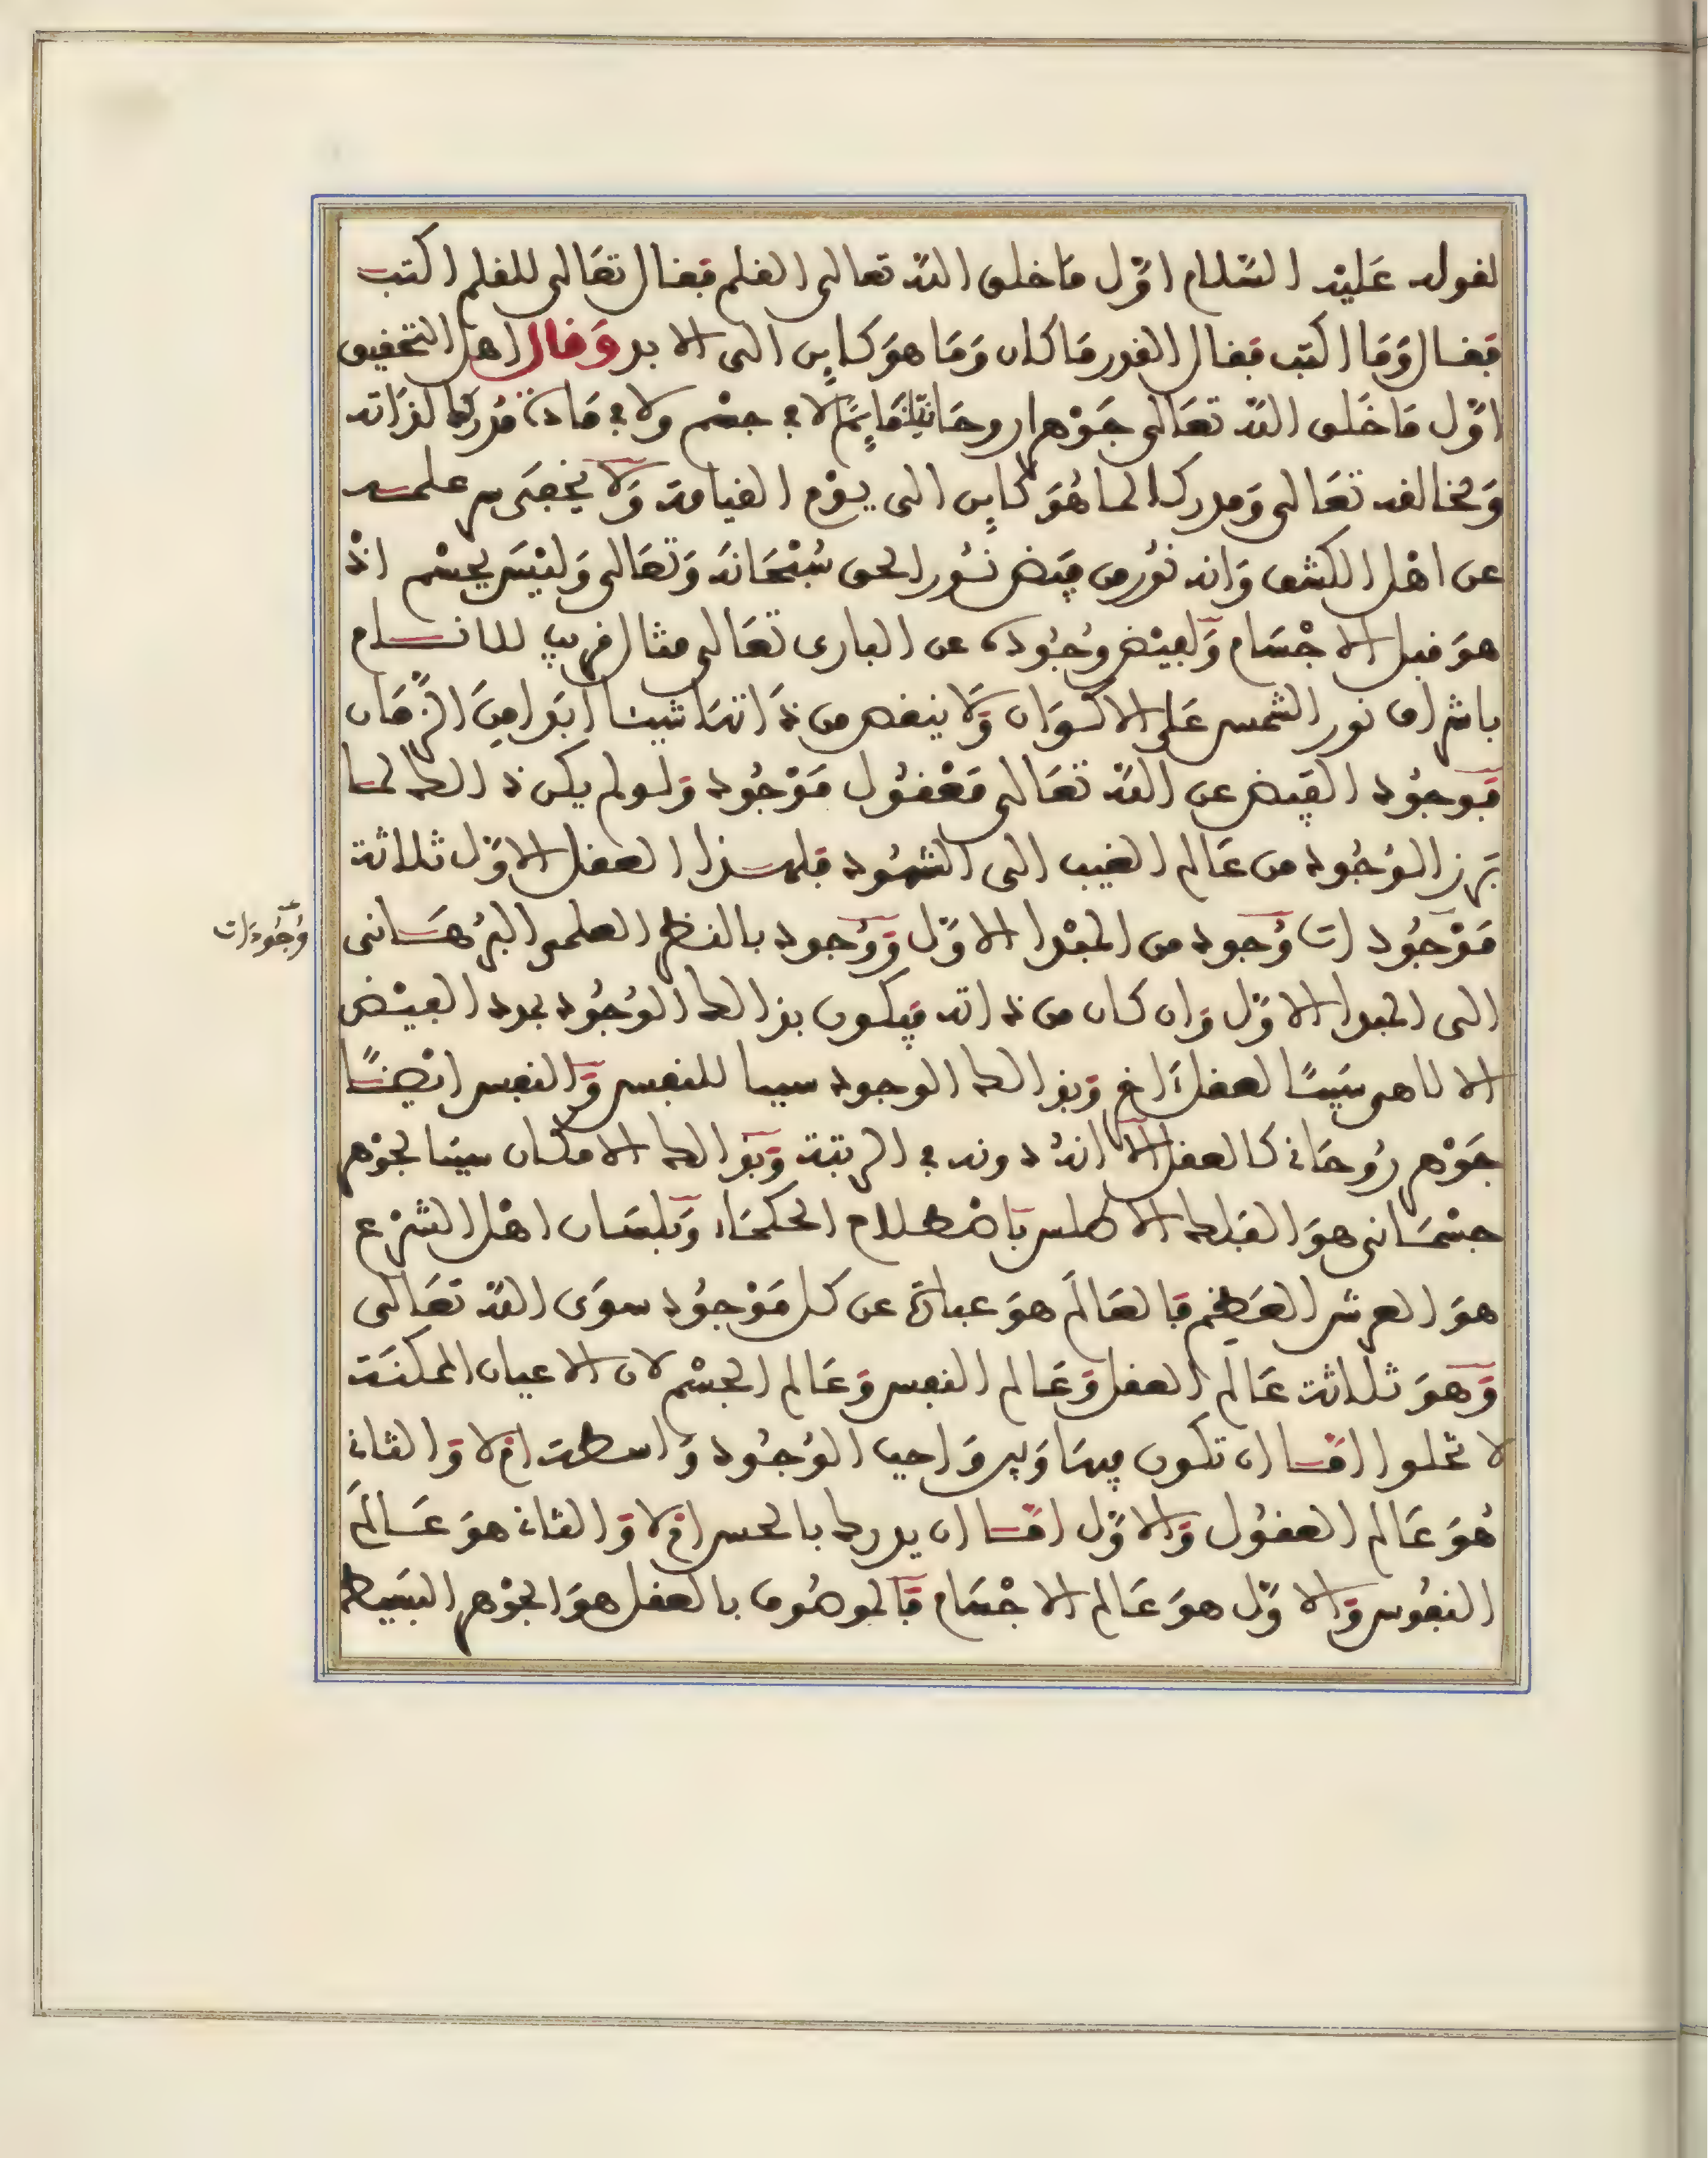 لقوله عَليْه السّلام اوّل مَا خلق اللّه تعالى القلم فقال تعَالى للقلم اكتب
فقال وَمَا اكتب فقال القدر مَا كان وَمَا هوَ كاين الى الابد وَقال اهل التحقيق
اوّل مَا خَلق اللّه تعَالى جَوْهرا روحَانيّا قَايمًا لا في جسْم ولا في مَادة مُدركا لذاته
وَلخالقه تعَالى وَمدركا لما هُوَ كاين الى يوْم القيامة وَلا يخفى من علمه
عن اهْل الكشف وَانه نوُر من فيَض نُور الحق سُبْحَانَه وَتعَالى وَليْسَ بجسْم اذْ
هوَ قبل الاجْسَام وَلفيْض وُجُوده عن البارى تعَالى مثال قريب للافهام
باشراق نور الشمس عَلى الاكوَان وَلا ينقص من ذاتهَا شيئا ابدا من الزّمَان
فوجوُد الفيض عن اللّه تعَالى مَعْقوُل مَوْجُود وَلو لم يكن ذالك لما
بَرز الوُجُود من عَالم الغيب الى الشهُود فلهذا العقل الاوّل ثلاثة
مَوْجُودات وُجود من المبْدا الاوّل وَوُجود بالنظر العلمى البُرهَانى
الى المبدا الاوّل وَان كان من ذاته فيكون بذالك الوُجُود بمدد الفيْض
الالاهى سَببًا لعقل آخر وَبذالك الوجود سببا للنفس وَالنفس ايْضًا
جَوْهر رُوحَاني كالعقل الا انهُ دونه في الرتبة وَبذالك الامكان سببا لجوْهر
جسْمَانى هوَ الفَلك الاطلس باصْطلاح الحكمَاء وَبلسَان اهْل الشرْع
هوَ العرش العَظيم فالعَالَم هوَ عبارة عن كل مَوْجوُد سوَى اللّه تعَالى
وَهوَ ثلاثة عَالَم العقل وَعَالم النفس وَعَالم الجسْم لان الاعيان الممكنَة
لا تخلوا امّا ان تكون بينهَا وَبين وَاجب الوُجُود وَاسطة ام لا وَالثاني
هُوَ عَالم العقوُل وَالاوّل امّا ان يدرك بالحس ام لا وَالثاني هوَ عَالَم
النفوُس وَالاوّل هوَ عَالم الاجْسَام فالموصُوف بالعقل هوَ الجوْهر البَسيط
وُجُودَات